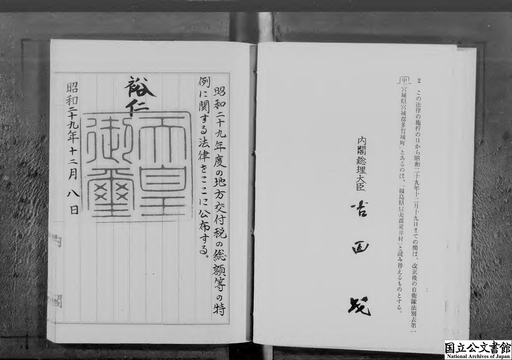 2 この法律の施行の日から昭和二十九年十二月十九日までの間は、改正後の自衛隊法別表第一
内閣総理大臣
吉田茂
昭和二十九年度の地方交付税の総額等の特
例に関する法律をここに公布する。
裕仁
天皇
御璽
昭和二十九年十二月八日
国立公文書館
National Archives of Japan